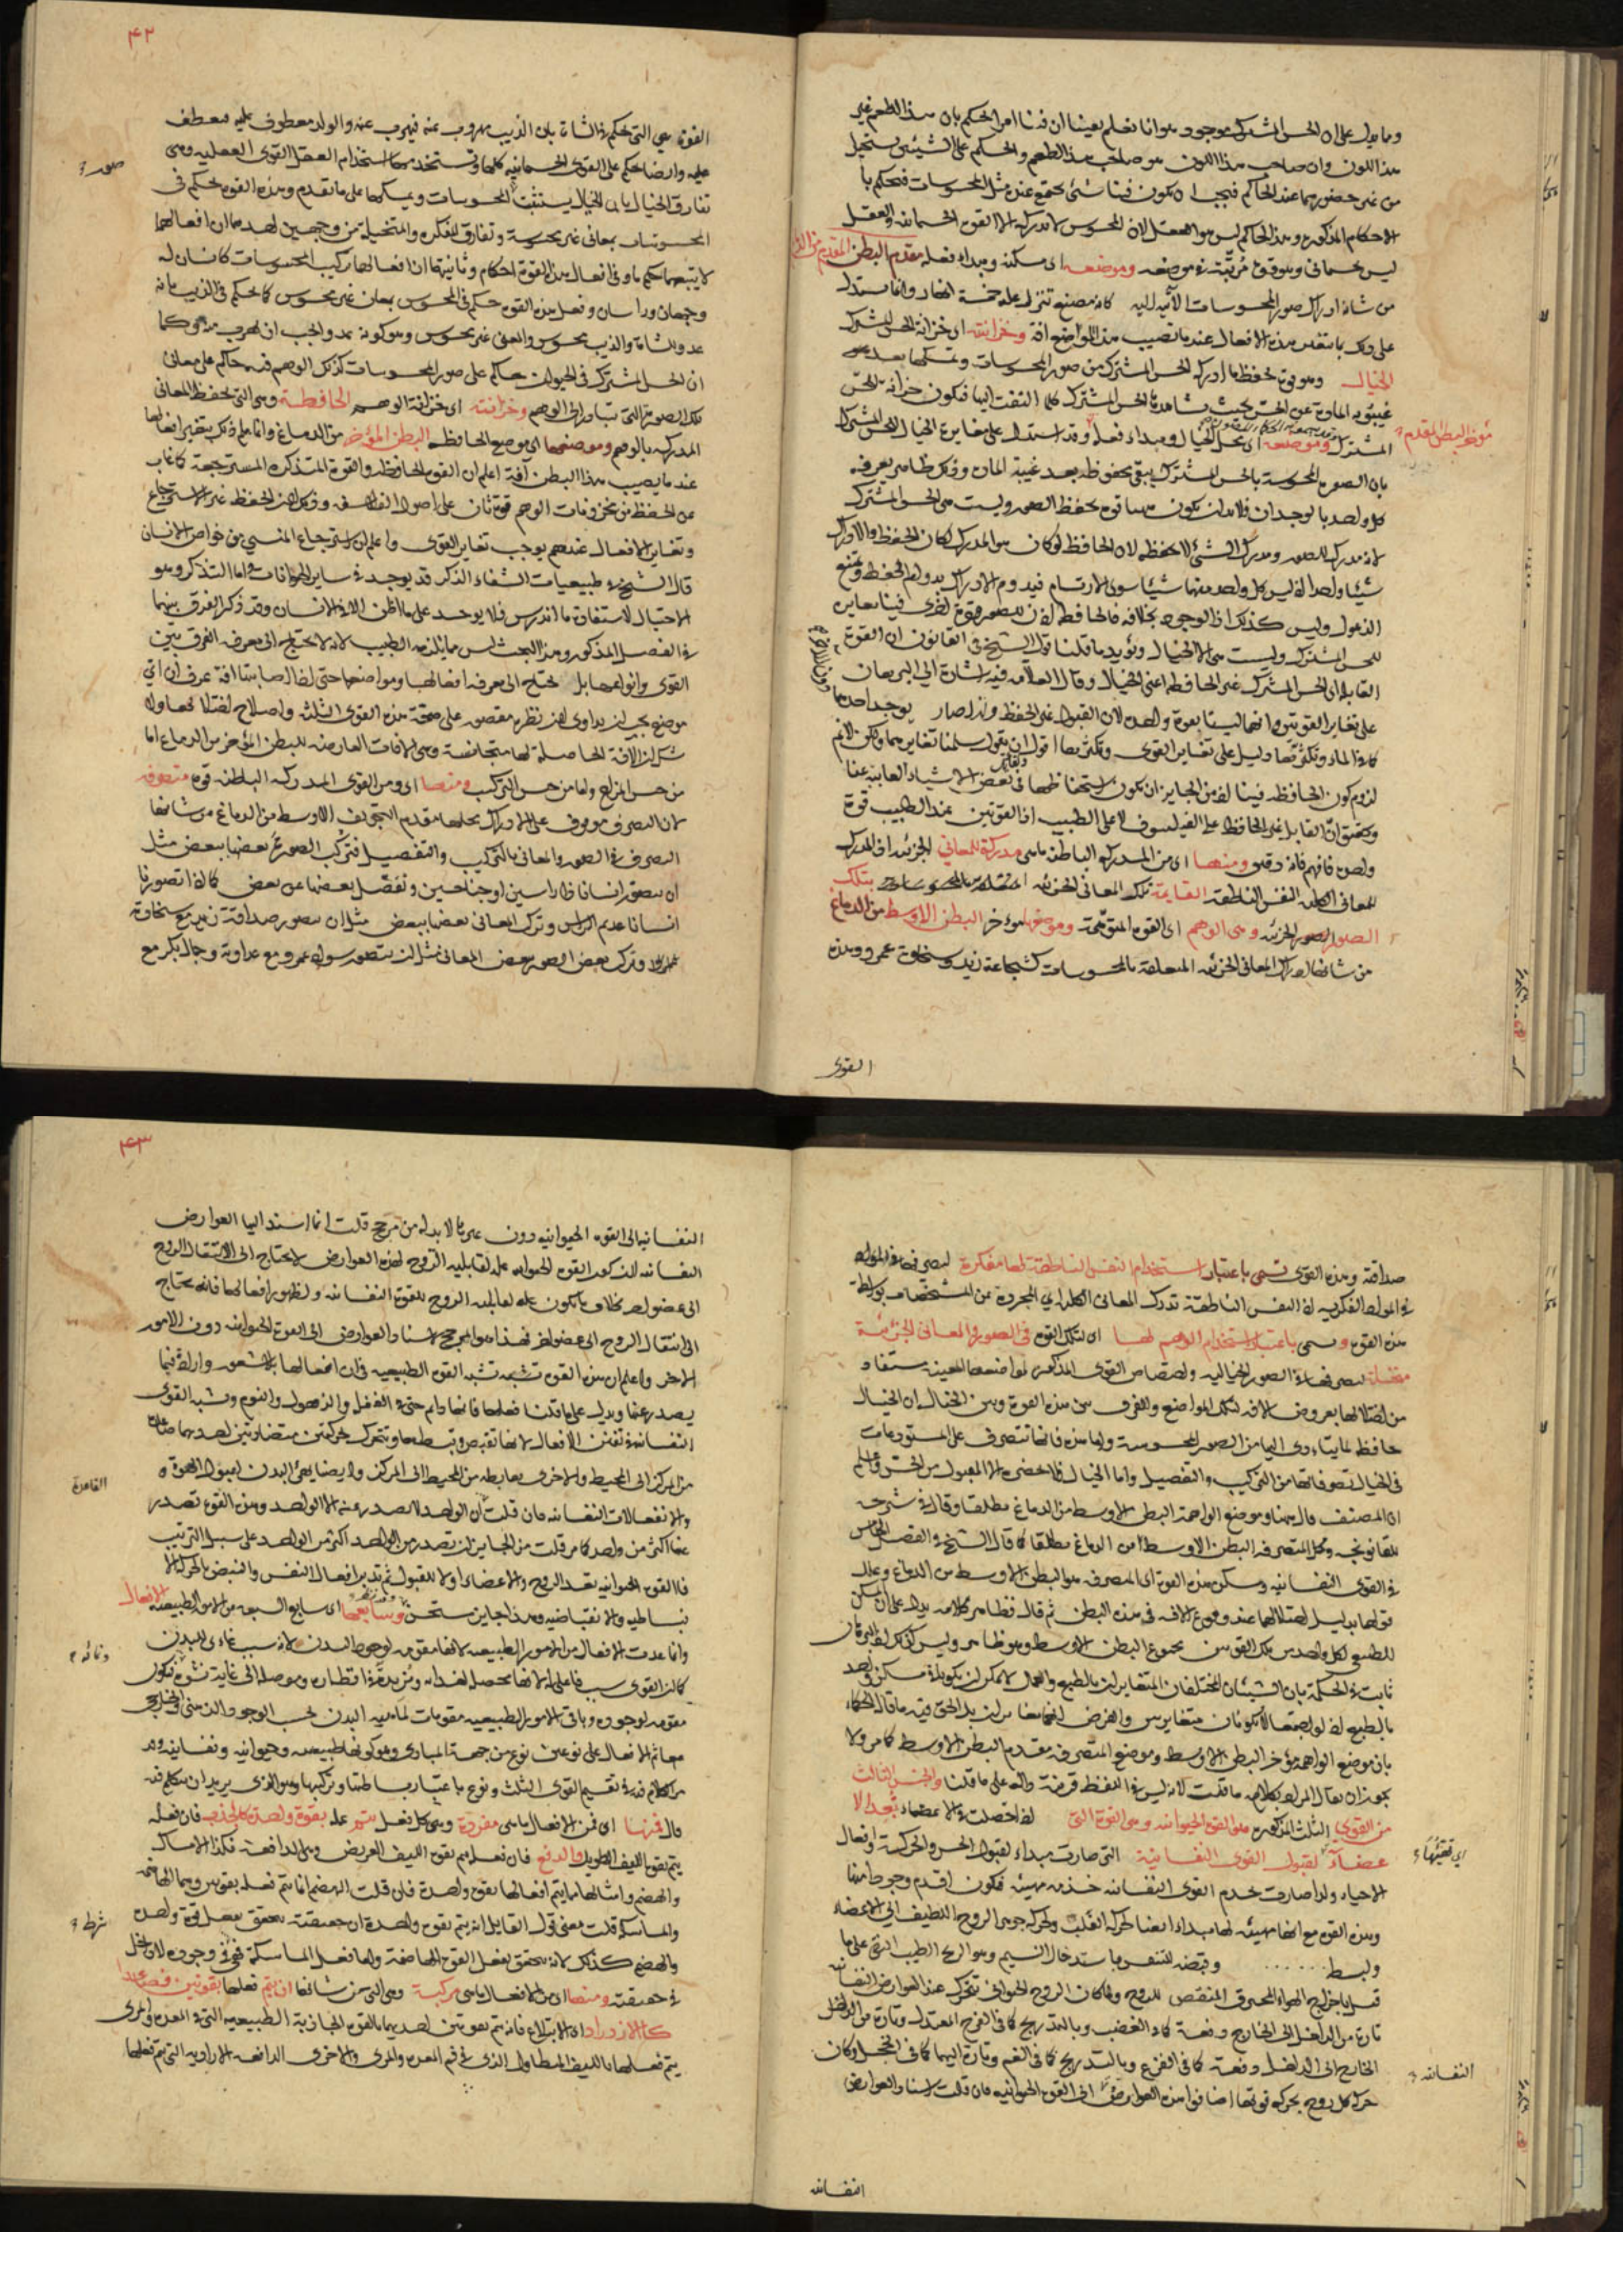 ومما يدل على ان الحس المشترك موجود هو انا نعلم يقينا ان فينا امرا يحكم بان هذا الطعم غير
هذا اللون وان صاحب هذا اللون هو صاحب هذا الطعم والحكم على الشيئين يستحيل
من غير حضورهما عند الحاكم فيجب ان يكون فينا شئ يجتمع عنده مثل المحسوسات فيحكم با
الاحكام المذكورة وهذا الحاكم ليس هو العقل لان المحسوس لا يدركه الا القوة الجسمانية والعقل
ليس جسماني وهو قوة مرتبة في موضعه وموضعه اى مسكنه ومبداء فعله مقدم البطن المقدم من الدماغ
من شانه ادراك صور المحسوسات الآتية اليه كانه مصنع تنزل عليه خمسة انهار وانما يستدل
على ذلك بانتقص هذه الافعال عندما تصيب هذا الموضع افة وخزانته اى خزانة الحس المشترك
الخيال وهو قوة تحفظ ما ادركه الحس المشترك من صور المحسوسات وتمسكها بعد
غيبوبة المادة عن الحس بحيث يشاهدها الحس المشترك كلما التفت اليها فيكون خزانة للحس
المشترك وموضعه اى محل الخيال ومبداء فعله وقد استدل على مغايرة الخيال للحس المشترك
مؤخر البطن المقدم
بان الصورة المحسوسة بالحس المشترك يبقى محفوظة بعد غيبة المادة وذلك ظاهر يعرفه
كل واحد بالوجدان فلا بد ان يكون هنا قوة تحفظ الصور وليست هي الحس المشترك
لانه مدرك للصور ومدرك الشئ لا يحفظه لان الحافظ لو كان هو المدرك لكان الحفظ والادراك
شيئا واحدا اذ ليس كل واحد منهما شيئا سوى الارتسام فيدوم الادراك بدوام الحفظ ويمتنع
الذهول وليس كذلك اذ الوجود بخلافه فالحافظ اذن للصور قوة اخرى فينا مغايرة
للحس المشترك وليست هي الا الخيال ويؤيد ما قلنا قول الشيخ في القانون ان القوة
القابلة اى الحس المشترك غير الحافظة اعني الخيال وقال العلامة فيه اشارة الى البرهان
على تغاير القوتين وانهما ليستا بقوة واحدة لان القبول غير الحفظ ولذا صار يوجد احدهما
لزوم كون الحافظة فينا اذ من الجايز ان يكون استحفاظهما في بعض الاشياء الغايبة عنا
وتحقيق ان القابل غير الحافظ على الفيلسوف لا على الطبيب اذ القوتين عند الطبيب قوة
واحدة فافهم فانه دقيق ومنها اى من المدركة الباطنة ما هي مدركة للمعاني الجزئية اذ المدرك
للمعاني الكلية النفس الناطقة القايمة تلك المعاني الجزئية بتلك
الصور الجزئية وهي الوهم اى القوة المتوهمة وموضعها مؤخر البطن الاوسط من الدماغ
من شانها ادراك المعاني الجزئية المتعلقة بالمحسوسات كشجاعة زيد وسخاوة عمرو وهذه
القوة
۴۲
القوة هي التي تحكم في الشاة بان الذيب مهروب عنه فيهرب عنه والولد معطوف عليه فيعطف
عليه وايضا تحكم على القوى الجسمانية كلها وتستخدمها استخدام العقل القوى العقلية وهي
صورة
تفارق الخيال بان الخيال يستثبت المحسوسات ويمسكها على ما تقدم وهذه القوة تحكم في
المحسوسات بمعاني غير محسوسة وتفارق المفكرة والمتخيلة من وجهين احدهما ان افعالهما
لا يتبعها حكم ما وفي افعال هذه القوة احكام وثانيهما ان افعالها تركيب المحسوسات كانسان له
وجهان وراسان وفعل هذه القوة حكم في المحسوس بمعان غير محسوس كما يحكم في الذيب بانه
عدو للشاة والذيب محسوس والمعنى غير محسوس وهو كونه عدو واجب ان يهرب منه وكما
ان الحس المشترك في الحيوان حاكم على صور المحسوسات كذلك الوهم فيه حاكم على معاني
تلك الصورة التي تتادى الى الوهم وخزانته اى خزانة الوهم الحافظة وهي التي تحفظ المعاني
المدركة بالوهم وموضعها اى موضع الحافظة البطن المؤخر من الدماغ وانما علم ذلك بتغير افعالها
عندما يصيب هذا البطن آفة اعلم ان القوة الحافظة والقوة المتذكرة المسترجعة لما غاب
عن الحفظ من مخزونات الوهم قوتان على اصول الفلاسفة وذلك لان الحفظ غير الاسترجاع
وتغاير الافعال عندهم يوجب تغاير القوى واعلم ان استرجاع المنسي من خواص الانسان
قال الشيخ في طبيعيات الشفاء الذكر قد يوجد في ساير الحيوانات واما التذكر وهو
الاحتيال لاستعادة ما اندرس فلا يوجد على ما اظن الا في الانسان وقد ذكر الفرق بينهما
في الفصل المذكور وهذا البحث ليس مما يلزمه الطبيب لانه لا يحتاج الى معرفة الفرق بين
القوى وانواعها بل يحتاج الى معرفة افعالها ومواضعها حتى اذا اصابتها افة عرف ان اي
موضع يجب ان يداوى اذ نظره مقصور على صحة هذه القوى الثلثة واصلاح اختلالها
من حس المزاج واما من حسن التركيب ومنها اى ومن القوى المدركة الباطنة قوة متصرفة
لان التصرف موقوف على الادراك محلها مقدم التجويف الاوسط من الدماغ من شانها
التصرف في الصور والمعاني بالتركيب والتفصيل فتركب الصور بعضها ببعض مثل
ان يتصور انسانا ذا راسين او جناحين وتفصل بعضها عن بعض كما اذا تصورنا
انسانا عديم الراس وتركب المعاني بعضها ببعض مثل ان يتصور صداقة زيد مع سخاوة
عمرو وتركب بعض الصور ببعض المعاني مثل ان يتصور سواد عمرو مع عداوة وجمال بكر مع
صداقة وهذه القوى تسمى باعتبار استخدام النفس الناطقة لها مفكرة لتصرفها في المواد
في المواد الفكرية اذ النفس الناطقة تدرك المعاني الكلية اي المجردة عن المشخصات بواسطة
هذه القوة وتسمى باعتبار استخدام الوهم لها اى لتلك القوة في الصور والمعاني الجزئية
متخيلة لتصرفها في الصور الخيالية واختصاص القوى المذكورة بمواضعها المعينة يستفاد
من اختلالها بعروض الافة لتلك المواضع والفرق بين هذه القوة وبين الخيال ان الخيال
حافظ لما يتادى اليها من الصور المحسوسة واما هذه فانها تتصرف على المستودعات
في الخيال تصرفاتها من التركيب والتفصيل واما الخيال فلا يحضره الا المقبول من الحس واعلم
ان المصنف قال ههنا وموضع الواهمة البطن الاوسط من الدماغ مطلقا وقال في شرحه
للقانونجه ومحل المتصرفة البطن الاوسط من الدماغ مطلقا كما قال الشيخ في الفصل الخامس
في القوى النفسانية ومسكن هذه القوة اى المتصرفة هو البطن الاوسط من الدماغ وعلل
قولها بدليل اختلالها عند وقوع الافة في هذه البطن ثم قال فظاهر كلامه يدل على ان المسكن
الطبيعي لكل واحد من تلك القوتين مجموع البطن الاوسط وهو ظاهر وليس كذلك اذ البرهان
ثابت في الحكمة بان الشيئان المختلفان المتغايران بالطبع والعمل لا يمكن ان يكون لهما مسكن واحد
بالطبع اذ لو اجتمعا لا يكونان متغايرين والفرض انهما متغايرين بل الحق فيه ما قال الحكماء
بان موضع الواهمة مؤخر البطن الاوسط وموضع المتصرفة مقدم البطن الاوسط كما مر ولا
يجوز ان يقال المراد بكلامه ما قلت لانه ليس في اللفظ قرينة دالة على ما قلنا والجنس الثالث
من القوى الثلث المذكورة هو القوة الحيوانية وهي القوة التي اذا حصلت في الاعضاء تعدها
اي تهيئها
لقبول القوى النفسانية التي صارت مبداء لقبول الحس والحركة وافعال
الحياة ولذا صارت تخدم القوى النفسانية خدمة مهيئة فيكون اقدم وجودا منها
وهذه القوة مع انها مهيئة لها مبداء ايضا لحركة القلب ولحركة جوهر الروح اللطيف الى الاعضاء
وبسط ...... وقبضه للتنفس باستدخال النسيم وهو الريح الطيب النقي على ما
قيل باخراج الهواء المحترق المنقص للروح ولما كان الروح الحيواني تتحرك عند العوارض النفسانية
تارة من الداخل الى الخارج دفعة كما في الغضب وبالتدريج كما في الفرح المعتدل وتارة من
الخارج الى الداخل دفعة كما في الفزع وبالتدريج كما في الغم وتارة اليهما كما في الخجل وكان
النفسانية
حركة كل روح بحركة قوتها اضافوا هذه العوارض الى القوة الحيوانية فان قلت اسناد العوارض
النفسانية
۴۳
النفسانية الى القوة الحيوانية دون غيرها لا بد له من مرجح قلت انما اسند اليها العوارض
النفسانية لان كون القوة الحيوانية علة لقابلية الروح لهذه العوارض لا يحتاج الى انتقال الروح
الى عضو اخر بخلاف ما يكون علة لقابلية الروح للقوة النفسانية ولظهور افعالها فانه يحتاج
الى انتقال الروح الى عضو اخر فهذا هو المرجح لاسناد العوارض الى القوة الحيوانية دون الامور
الاخر واعلم ان هذه القوة تشبه القوة الطبيعية في ان افعالها بلا شعور وارادة فيما
يصدر عنها ويدل على ما قلنا فعلها فانها دايم حتى في الغفلة والذهول والنوم وتشبه القوى
النفسانية في تفنن الافعال لانها تقبض وتبسط معا وتتحرك بحركتين متضادتين احدهما
من المركز الى المحيط والاخرى بعابطة من المحيط الى المركز وايضا يهئ البدن لقبول القوة و
القاعدة
والانفعالات النفسانية فان قلت ان الواحد لا يصدر عنه الا الواحد وهذه القوة تصدر
عنها اكثر من واحد كما مر قلت من الجايز ان تصدر من الواحد اكثر من الواحد على سبيل الترتيب
فالقوة الحيوانية تعد الروح والاعضاء اولا للقبول ثم تدبر افعال النفس والنبض بالحركة
انبساطية والانقباضية وهذا جايز مستحسن وسابعها اى سابع السبعة من الامور الطبيعية الافعال
وانما عدت الافعال من الامور الطبيعية لانها مقومة لوجود البدن لانه سبب غائي للبدن
كما ان القوى سبب فاعلي اذ لانها تحصل الغذاء وتزيد في اقطاره وتوصله الى غاية نشوه فيكون
مقومة لوجوده وباقي الامور الطبيعية مقومات لماهية البدن بحسب الوجود الذهني والخارجي
معا ثم الافعال على نوعين نوع من جهة المبادي وهو كونها طبيعية وحيوانية ونفسانية وقد
مر الكلام فيه في تقسيم القوى الثلث ونوع باعتبار بساطتها وتركيبها وهو الذي يريد ان يتكلم فيه
قال فمنها اى فمن الافعال ما هي مفردة وهي كل فعل يتم عمله بقوة واحدة كالجذب فان فعله
يتم بقوة الليف الطويل والدفع فان فعله يتم بقوة الليف العريض وهي الدافعة فكذا الامساك
والهضم وامثالها مما يتم افعالها بقوة واحدة فان قلت الهضم انما يتم فعله بقوتين وهما الهاضمة
والماسكة قلت معنى قول القايل انه يتم بقوة واحدة ان حقيقته يتحقق بفعل قوة واحدة
شرط
والهضم كذلك لانه يتحقق بفعل القوة الهاضمة واما فعل الماسكة فهي في وجوده لا دخل
في حقيقته ومنها اى من الافعال ما هي مركبة وهي التي من شانها ان يتم فعلها بقوتين فصاعدا
كالازدراد اى الابتلاع فانه يتم بقوتين احديهما بالقوة الجاذبة الطبيعية التي في المعدة والمرى
يتم فعلها بالليف المتطاول الذي في فم المعدة والمرى والاخرى الدافعة الارادية التي يتم فعلها